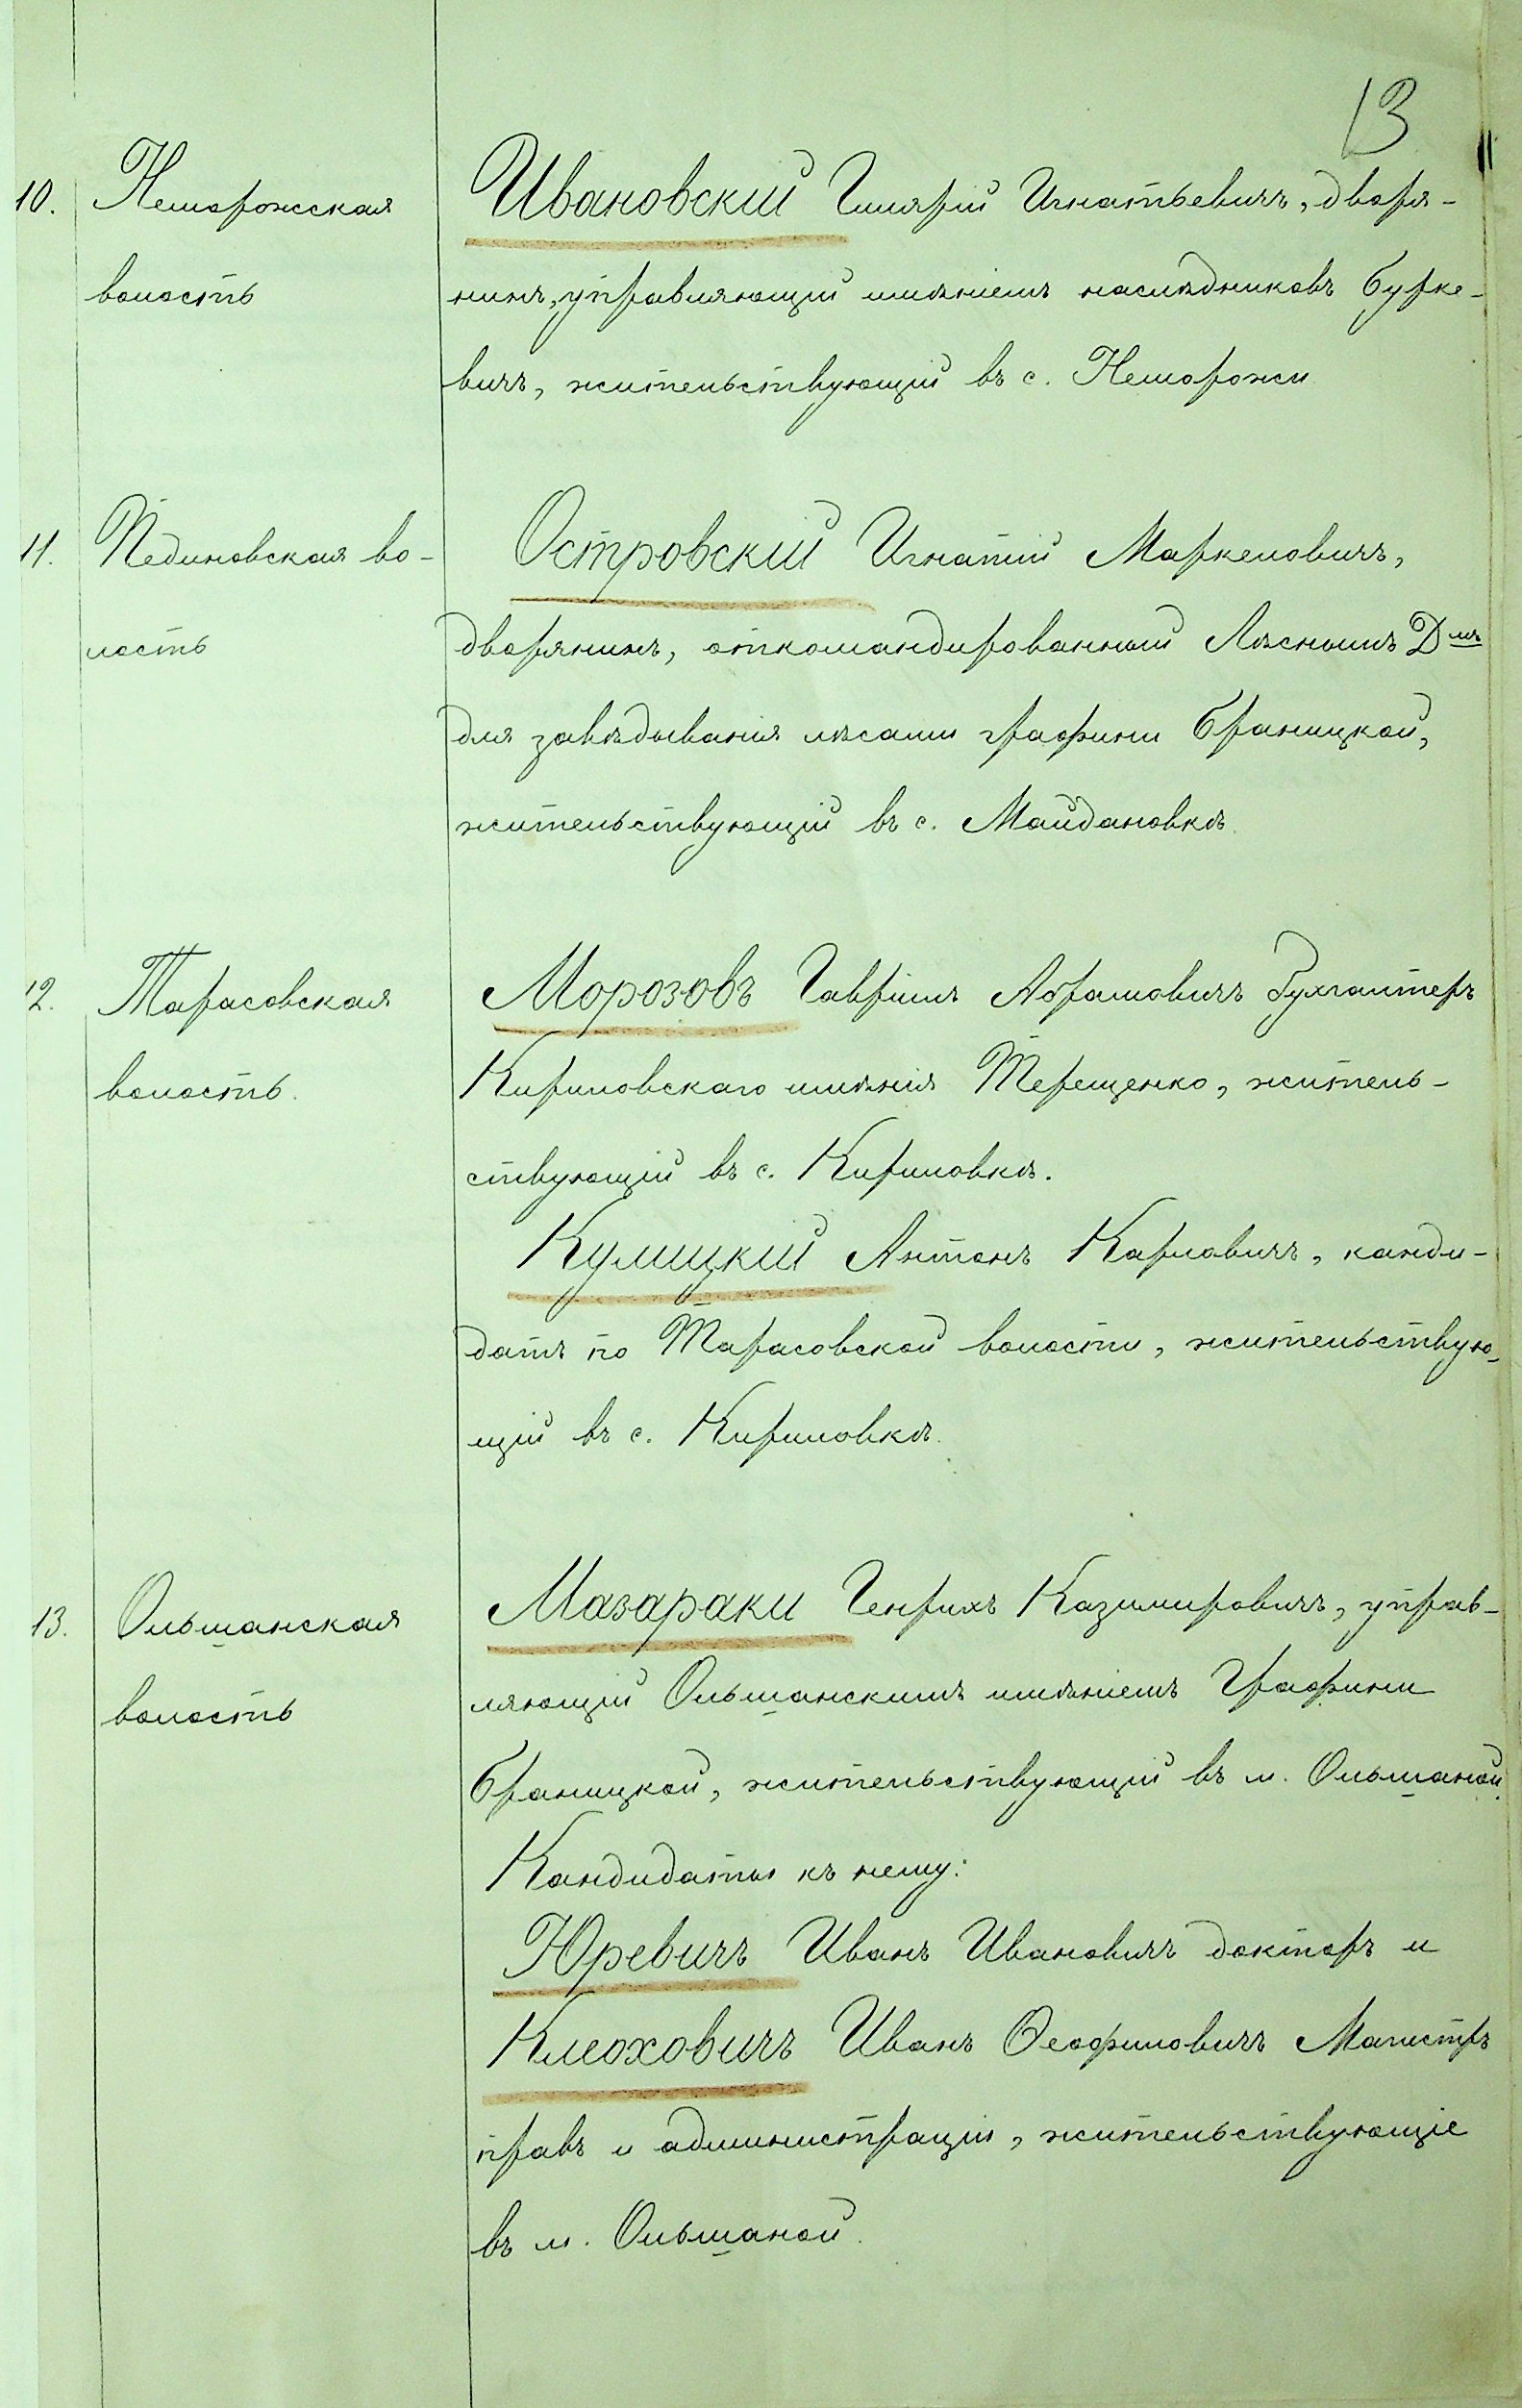 13
10. Неморожская
волость
Ивановскій Гилярій Игнатьевичъ, дворя-
нинъ, управляющій имѣніемъ наслѣдниковъ Бурке-
вичъ, жительствующій въ с. Неморожи
11. Пединовская во-
лость
Островскій Игнатій Маркеловичъ,
дворянинъ, откомандированный Лѣснымъ Д-мъ
для завѣдыванія лѣсами графини Браницкой,
жительствующій въ с. Майдановкѣ.
12. Тарасовская
волость.
Морозовъ Гавріилъ Абрамовичъ Бухгалтеръ
Кириловскаго имѣнія Терещенко, житель-
ствующій въ с. Кириловкѣ.
Кулицкій Антонъ Карловичъ, канди-
датъ по Тарасовской волости, жительствую-
щій въ с. Кириловкѣ.
13. Ольшанская
волость
Мазараки Генрихъ Казимировичъ, управ-
ляющій Ольшанскимъ имѣніемъ Графини
Браницкой, жительствующій въ м. Ольшаной.
Кандидаты къ нему:
Юревичъ Иванъ Ивановичъ докторъ и
Клеоховичъ Иванъ Ѳеофиловичъ Магистръ
правъ и администраціи, жительствующіе
въ м. Ольшаной.